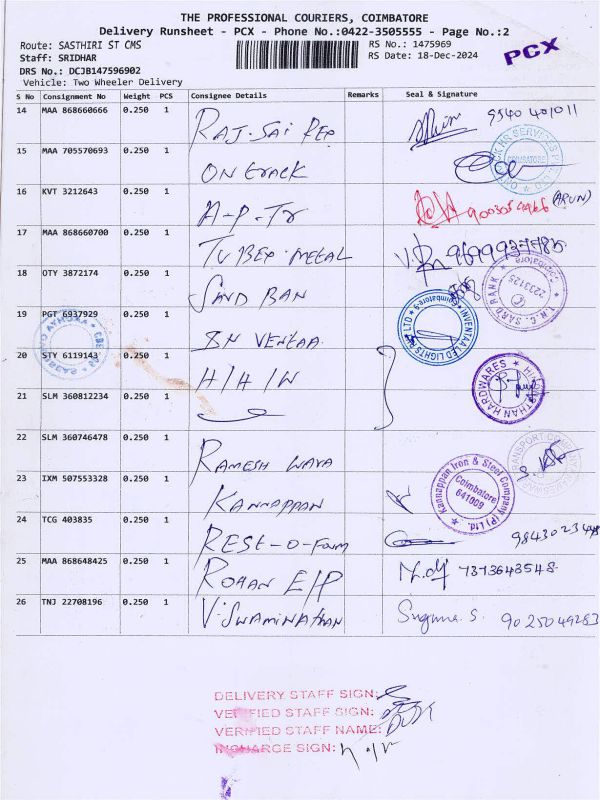 THE PROFESSIONAL COURIERS, COIMBATORE
Delivery Runsheet - PCX - Phone No.:0422-3505555 - Page No.:2
Route: SASTHIRI ST CMS
RS No.: 1475969
Staff: SRIDHAR
RS Date: 18-Dec-2024
PCX
DRS No.: DCJB147596902
Vehicle: Two Wheeler Delivery
S No Consignment No Weight PCS Consignee Details Remarks Seal & Signature
14 MAA 868660666 0.250 1 RAJ-SAI REP 9540 401011
15 MAA 705570693 0.250 1 ON track
COIMBATORE
16 KVT 3212643 0.250 1 A-P-Tr (ARUN)
17 MAA 868660700 0.250 1 TUBEX.METAL
18 OTY 3872174 0.250 1 SAND BAN
Coimbatore 2203125
19 PGT 6937929 0.250 1 BN VENKAA.
INVENTAA LED LIGHTS (P) LTD Coimbatore-9
20 STY 6119143 0.250 1 H/H/W
HINDUSTHAN HARDWARES
21 SLM 360812234 0.250 1
22 SLM 360746478 0.250 1 RAMESH WAVA
TRANSPORT COMPANY
23 IXM 507553328 0.250 1 KANNAPPAN
Kannappan Iron & Steel Company (P) Ltd. Coimbatore 641009
24 TCG 403835 0.250 1 REST-O-Foam
25 MAA 868648425 0.250 1 ROHAN E/P 7373643548
26 TNJ 22708196 0.250 1 VISWAMINATHAN Suguna. S. 9025049283
DELIVERY STAFF SIGN:
VERIFIED STAFF SIGN:
VERIFIED STAFF NAME:
INCHARGE SIGN: